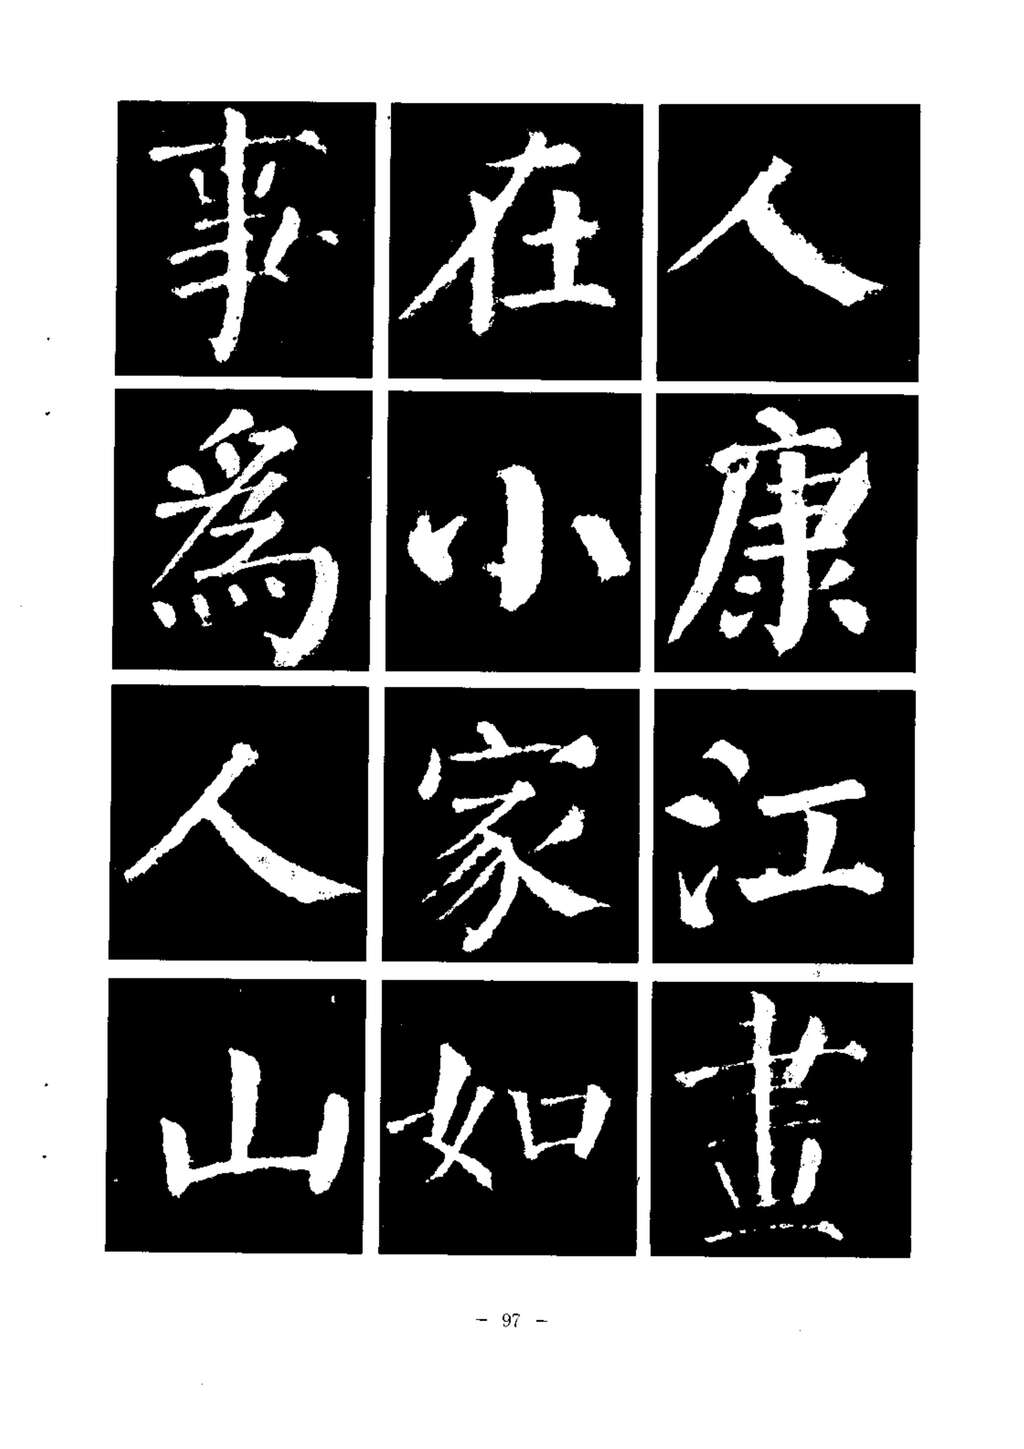 事在人
爲小康
人家江
山如畫
- 97 -